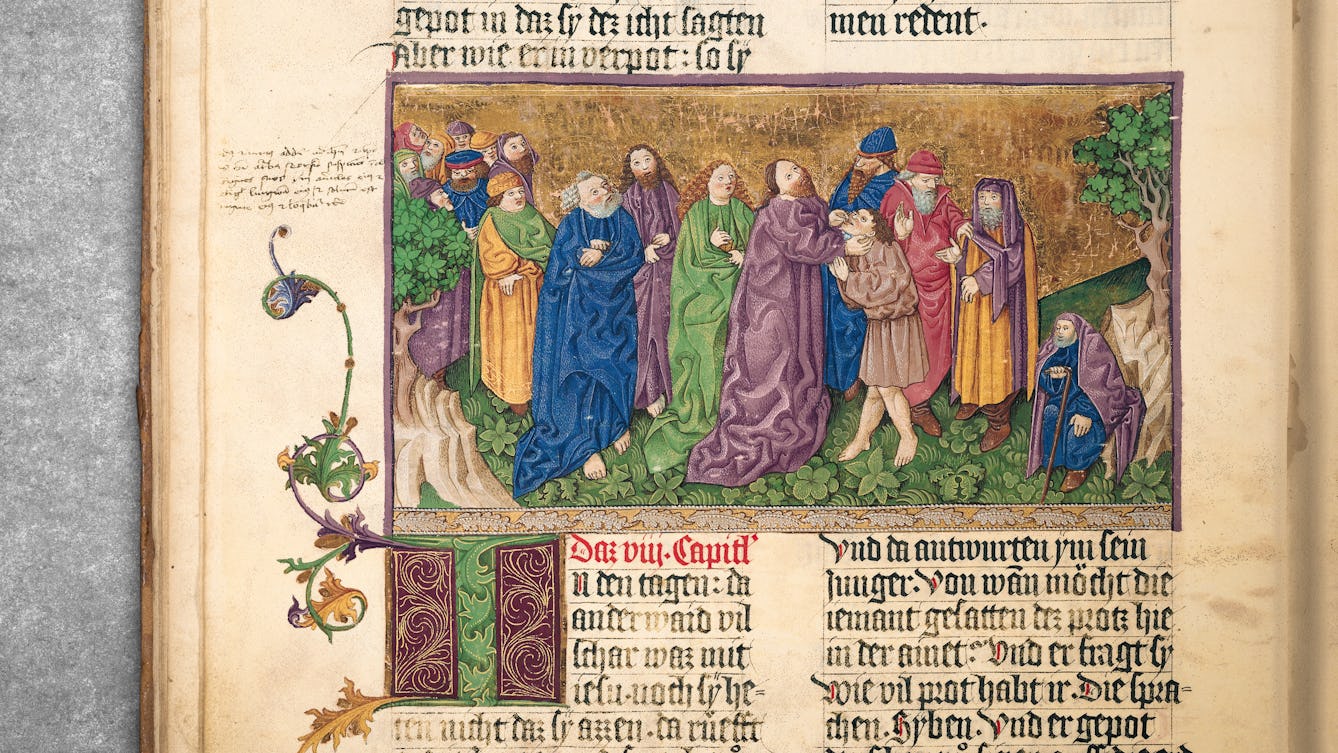 gepot in daz sy dez icht sagten
Aber wie er in verpot: so sy
men redent.
Daz viij. Capitl'
In den tagen: da
anderwaid vil
schar waz mit
iesu. noch sy he=
ten nicht daz sy azzen. da rüefft
Vnd da antwurten ym sein
Junger. Von wann möcht die
iemant gesatten dez protz hie
in der ainet? Vnd er fragt sy
Wie vil prot habt ir. Die spra=
chen. Syben. Vnd er gepot